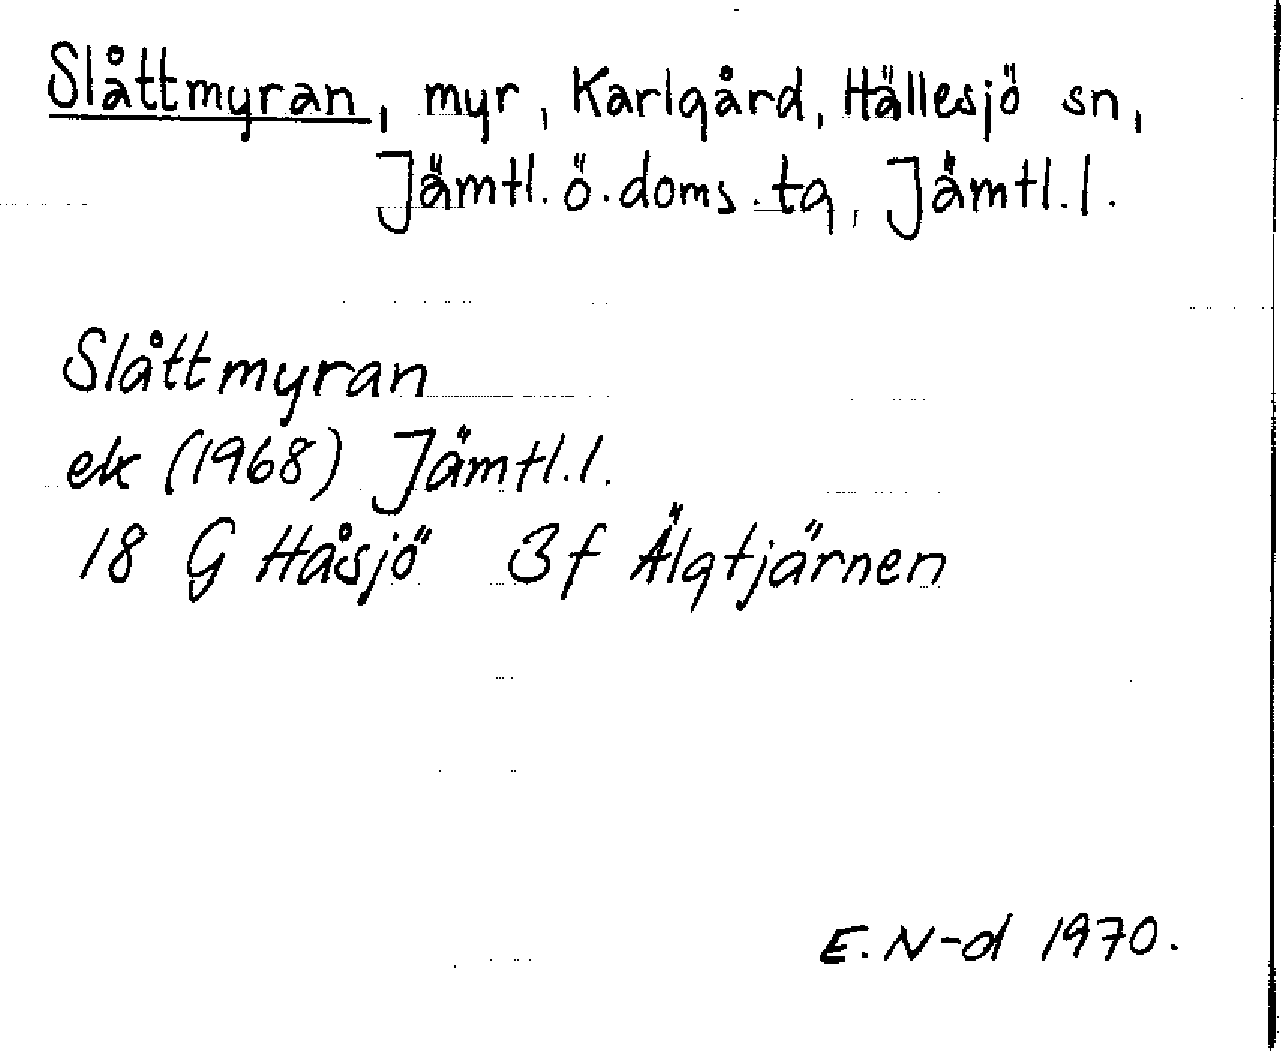 Slåttmyran, myr, Karlgård, Hällesjö sn,
Jämtl. ö. doms. tg, Jämtl. l.
Slåttmyran
ek (1968) Jämtl. l.
18 G Håsjö 3f Älgtjärnen
E. N-d 1970.